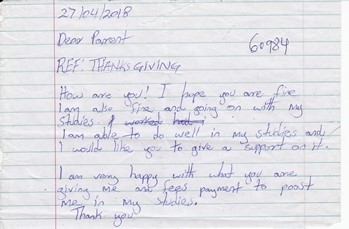 27/04/2018
Dear Parent
60984
REF: THANKSGIVING
How are you! I hope you are fine
I am also fine and going on with my
studies. I worked hard
I am able to do well in my studies and
I would like you to give a support on it.
I am very happy with what you are
giving me and fees payment to poost
me in my studies.
Thank you